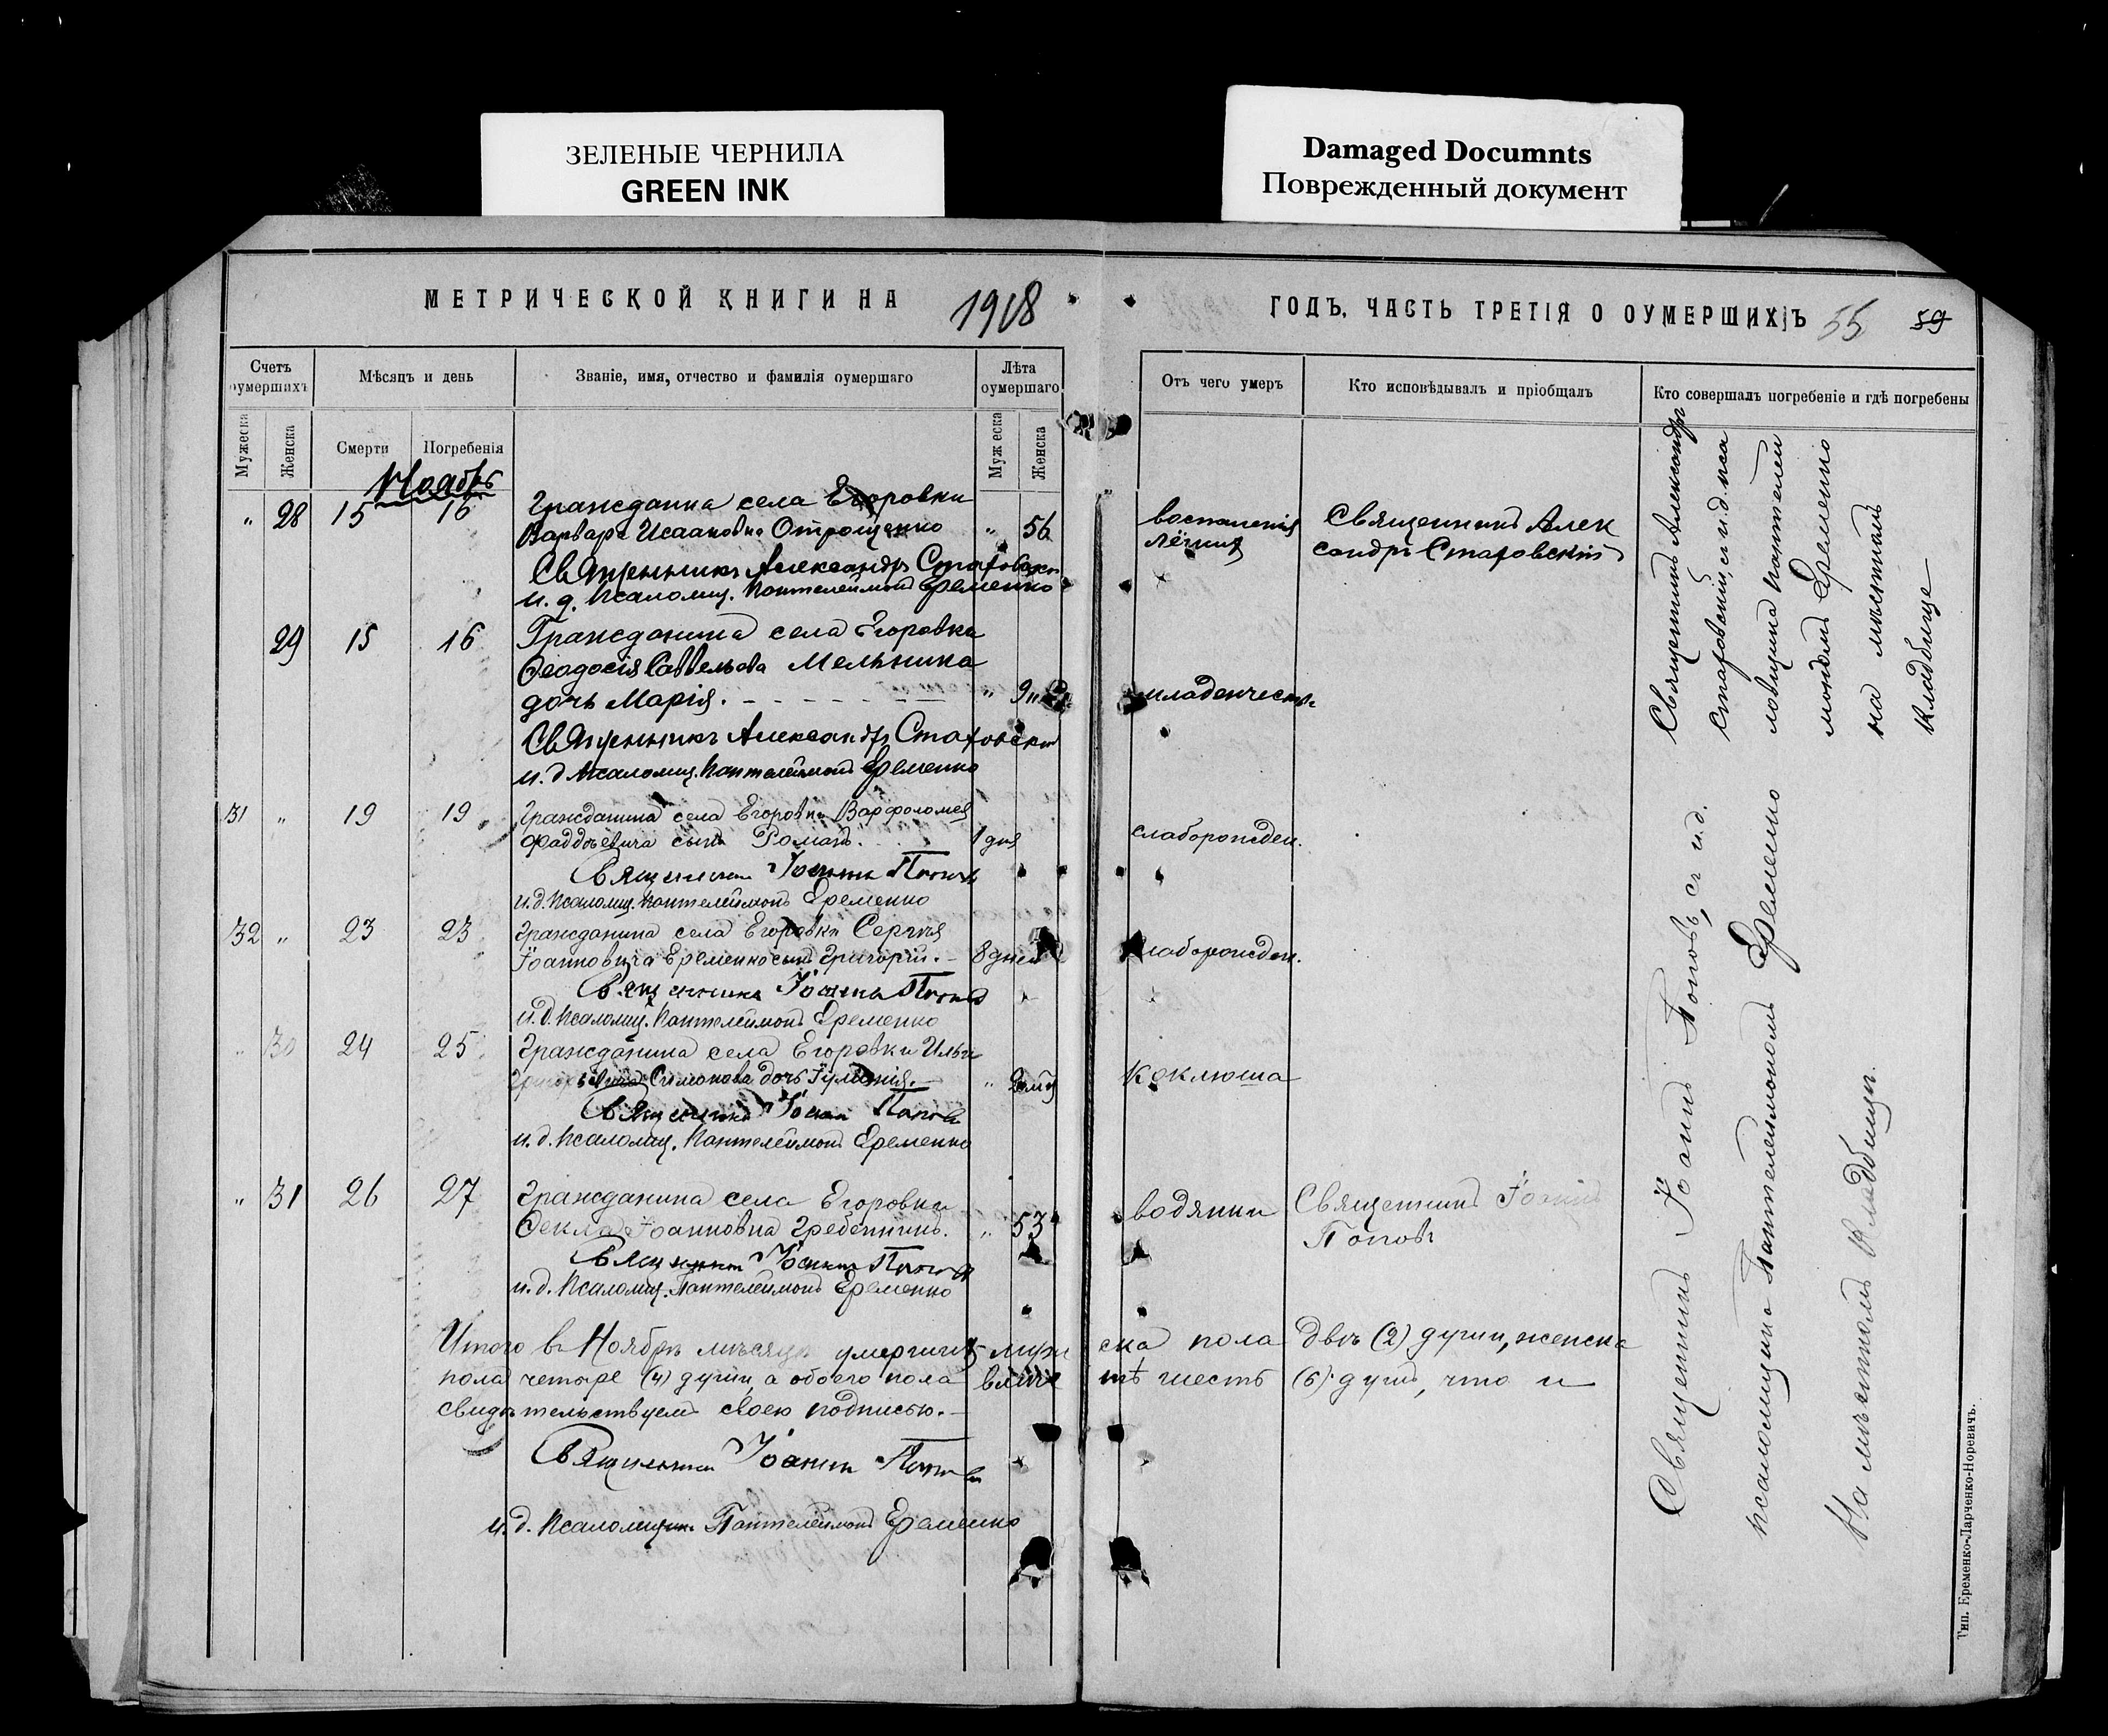 ЗЕЛЕНЫЕ ЧЕРНИЛА
GREEN INK
Damaged Documnts
Поврежденный документ
МЕТРИЧЕСКОЙ КНИГИ НА 1918
ГОДЪ, ЧАСТЬ ТРЕТІЯ О ОУМЕРШИХЪ 55 59
Счетъ оумершихъ
Мѣсяцъ и день
Званіе, имя, отчество и фамилія оумершаго
Лѣта оумершаго
Отъ чего умеръ
Кто исповѣдывалъ и пріобщалъ
Кто совершалъ погребеніе и гдѣ погребены
Мужеска
Женска
Смерти
Погребенія
Мужеска
Женска
Ноябрь
„ 28 15 16 Гражданка села Егоровки
Варвара Исааковна Отрощенко „ 56 воспаленія Священникъ Алек
легких сандръ Стаховскій
Священникъ Александръ Стаховскій
и. д. псаломщ. Пантелеймонъ Еременко
29 15 16 Гражданина села Егоровки
Ѳеодосія Савельева Мельника
дочь Марія. „ 9 младенческ.
Священникъ Александръ Стаховскій
и. д. псаломщ. Пантелеймонъ Еременко
31 „ 19 19 Гражданина села Егоровки Варфоломея
Фаддѣевича сынъ Романъ. 1 дня слаборожден.
Священникъ Іоаннъ Поповъ
и. д. псаломщ. Пантелеймонъ Еременко
32 „ 23 23 Гражданина села Егоровки Сергія
Іоанновича Еременко сынъ Григорій. 8 дней слаборожден.
Священникъ Іоаннъ Поповъ
и. д. псаломщ. Пантелеймонъ Еременко
„ 30 24 25 Гражданина села Егоровки Ильи
Симонова дочь Іуліанія. „ коклюша
Священникъ Іоаннъ Поповъ
и. д. псаломщ. Пантелеймонъ Еременко
„ 31 26 27 Гражданина села Егоровки
Ѳекла Іоанновна Гребенникъ. „ 53 водянки Священникъ Іоаннъ
Поповъ
Священникъ Іоаннъ Поповъ
и. д. псаломщ. Пантелеймонъ Еременко
Итого въ Ноябрѣ мѣсяцѣ умершихъ муже ска пола двѣ (2) души, женска
пола четыре (4) души, а обоего пола вмѣс тѣ шесть (6) душъ, что и
свидѣтельствуемъ своею подписью.
Священникъ Іоаннъ Поповъ
и. д. псаломщик Пантелеймонъ Еременко
Священникъ Александръ
Стаховскій, съ и. д. пса
ломщика Пантелей
мономъ Еременко
на мѣстномъ
кладбище
Священникъ Іоаннъ Поповъ, съ и. д.
псаломщика Пантелеймономъ Еременко
На мѣстномъ кладбищѣ.
Тип. Еременко-Ларченко-Норевичъ.